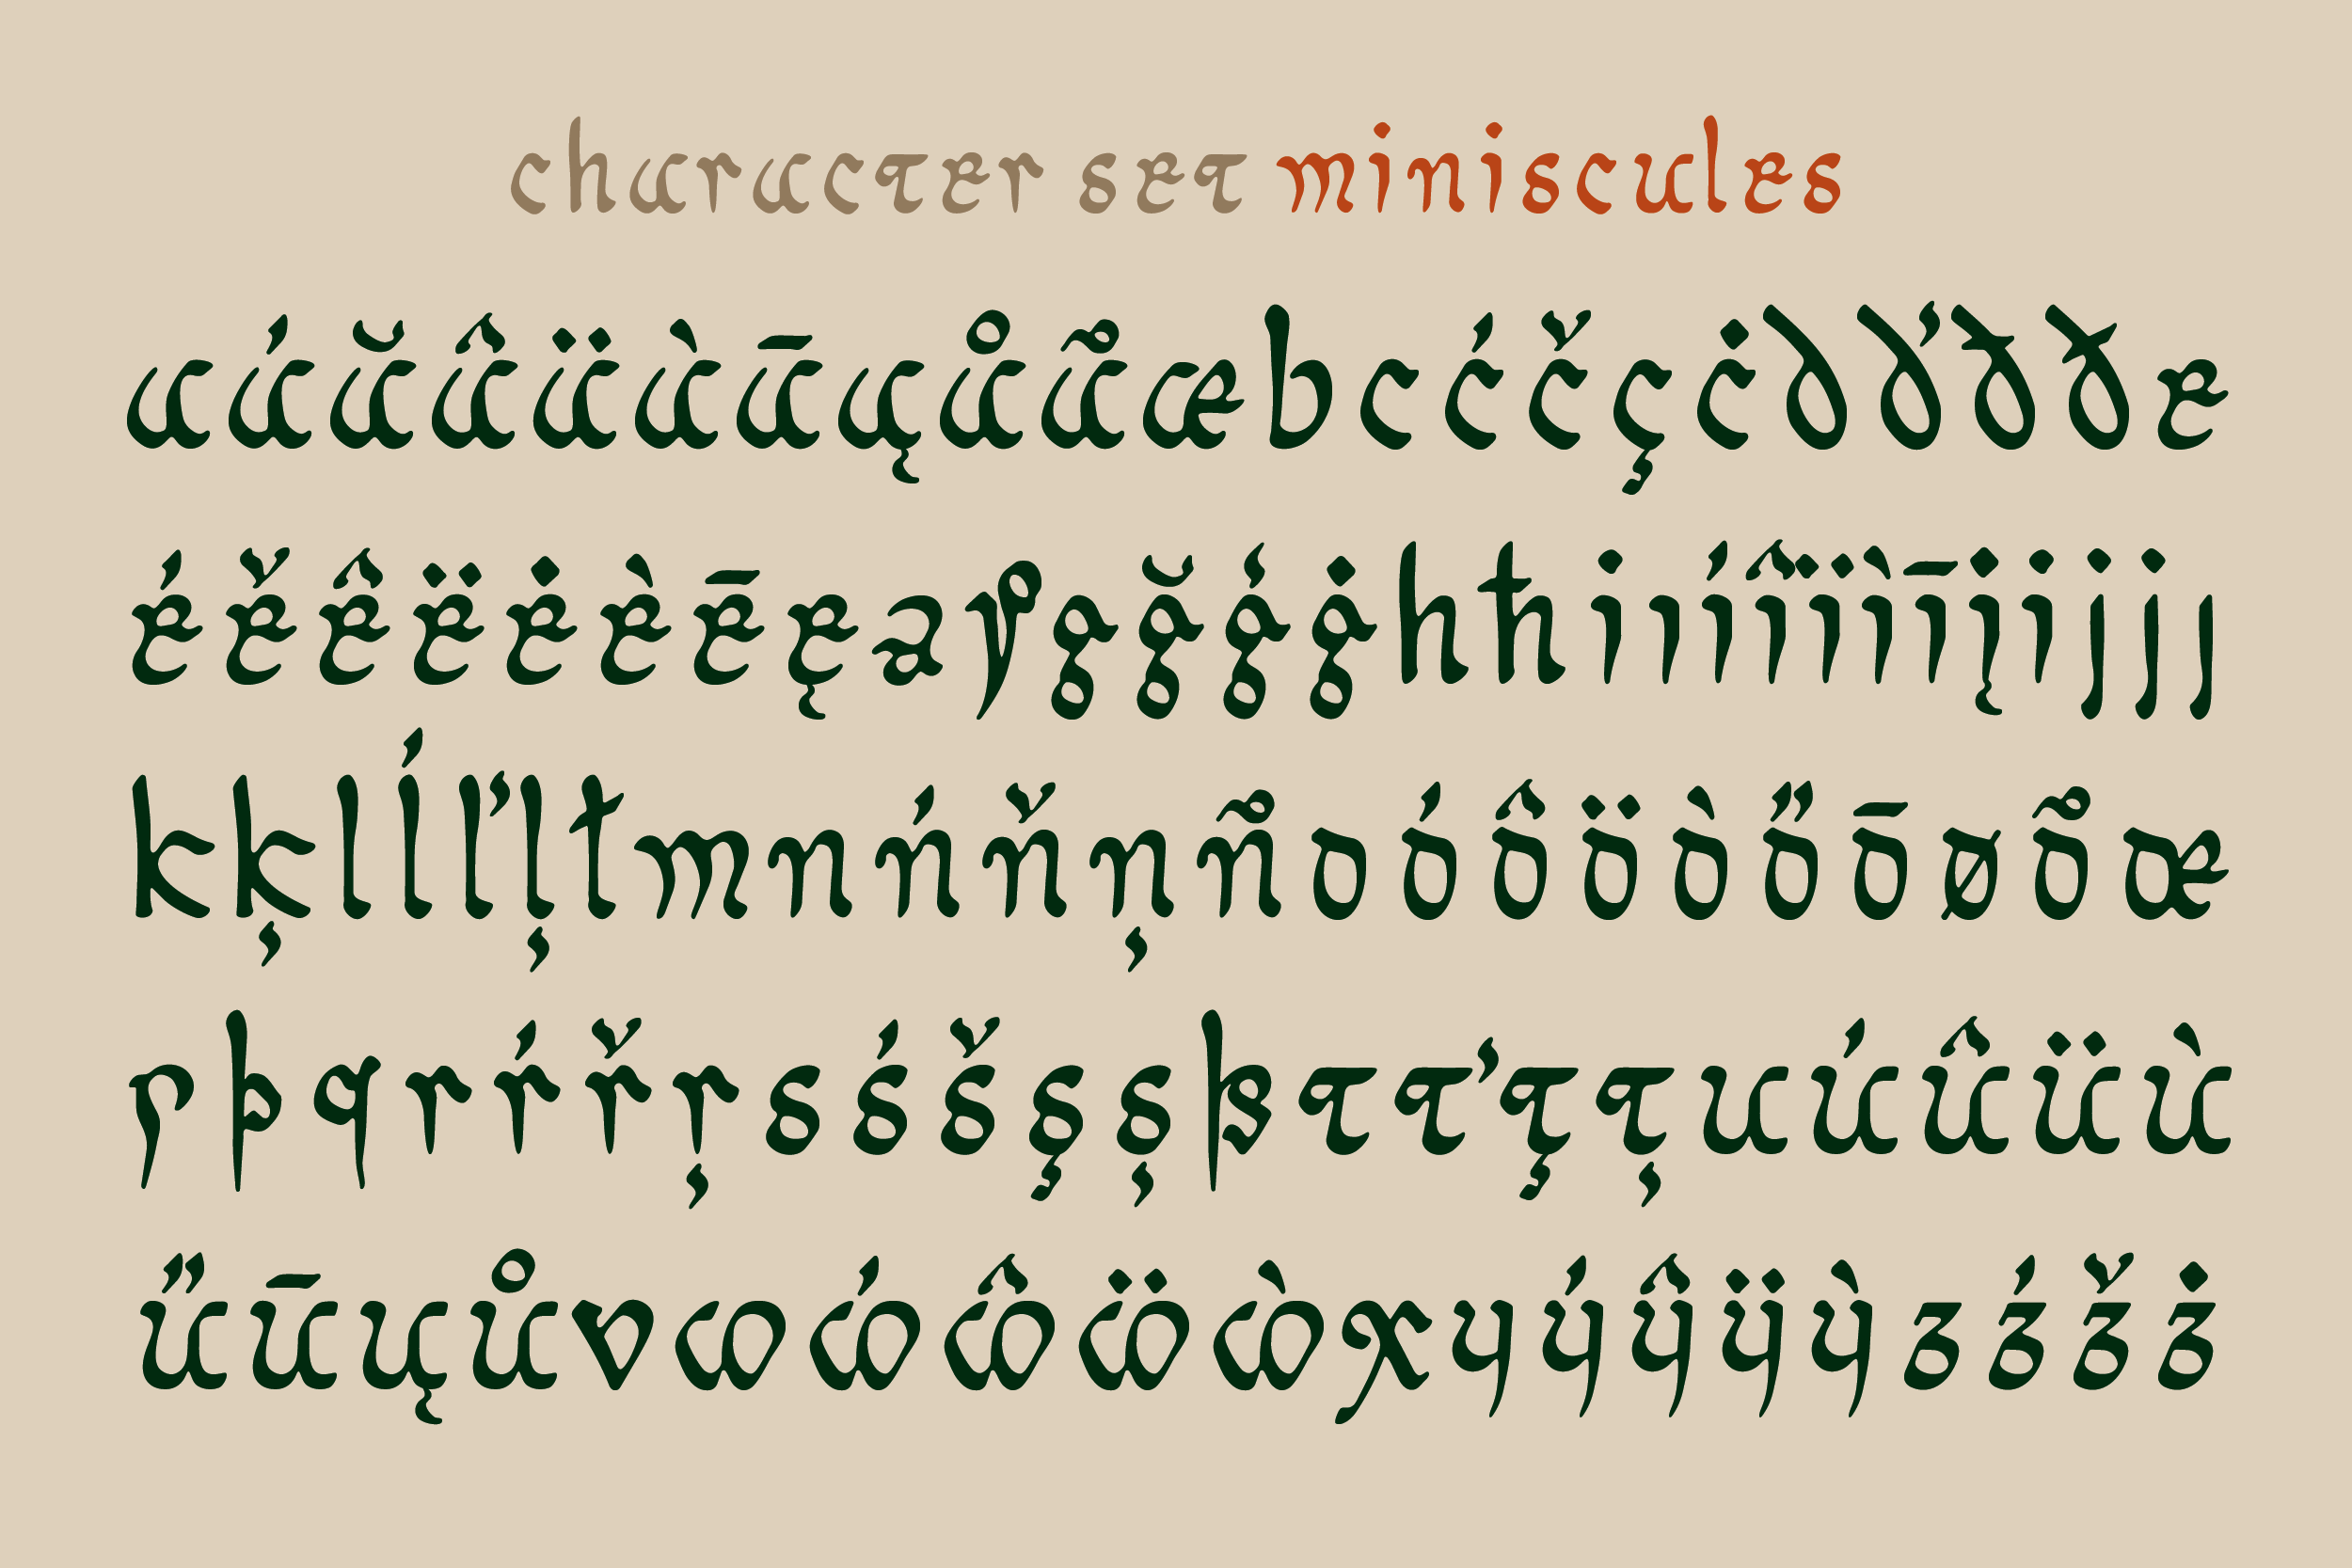 character set miniscules
aáăâäàāąåãæbcćčçċdďđðe
éěêëėèēęəfgğģġhħiıíîïìīįĳjȷ
kķlĺľļłmnńňņñoóôöòőōøõœ
pþqrŕřŗsśšşșßtťţțuúûüù
űūųůvwẃŵẅẁxyýŷÿỳzźžż